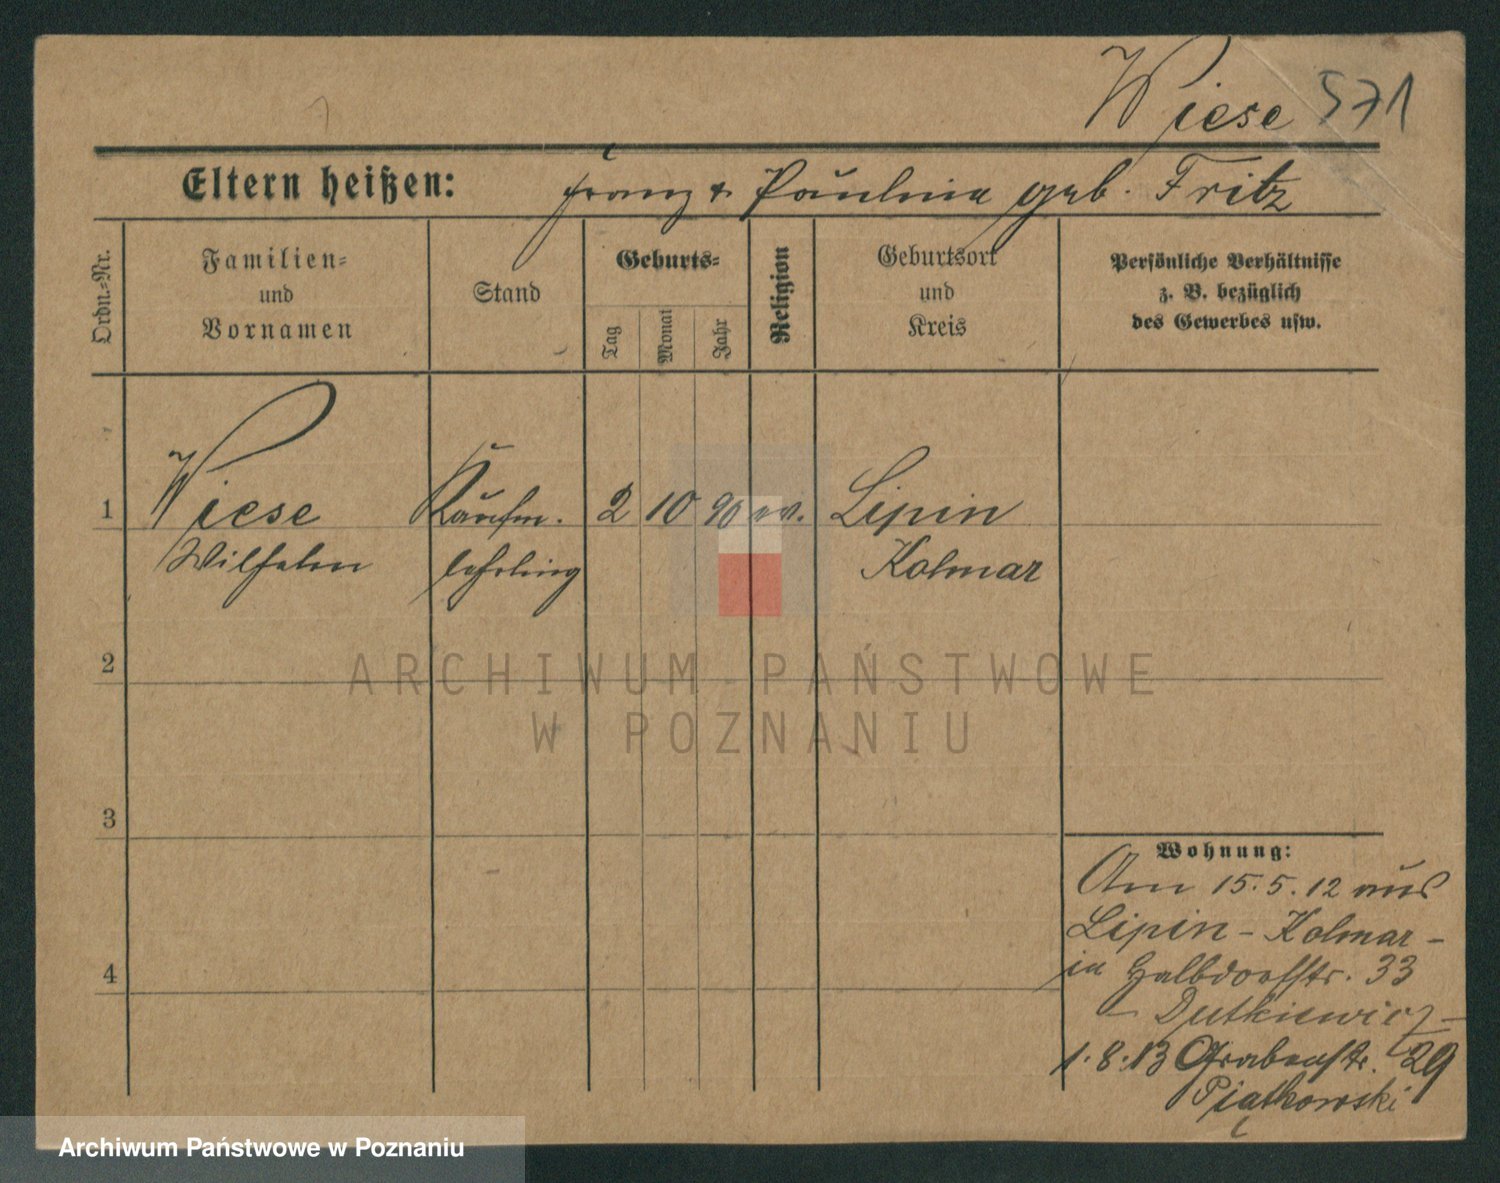 Wiese 571
Eltern heißen: Franz & Paulina geb. Fritz
Ordn.-Nr.
Familien-
und
Vornamen
Stand
Geburts-
Tag
Monat
Jahr
Religion
Geburtsort
und
Kreis
Persönliche Verhältnisse
z. B. bezüglich
des Gewerbes usw.
1 Wiese Kaufm. 2 10 90 ev. Lipin
Wilhelm lehrling Kolmar
2
ARCHIWUM PAŃSTWOWE
W POZNANIU
3
Wohnung:
Am 15.5.12 aus
Lipin - Kolmar -
in Halbdorfstr. 33
4
- Dutkiewicz -
1.8.13 Grabenstr. 29
Piątkowski
Archiwum Państwowe w Poznaniu